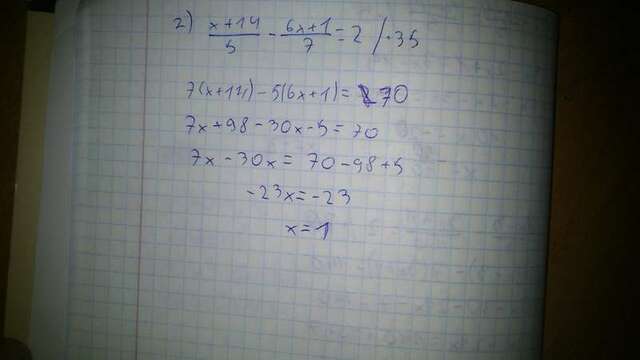 2) x+14/5 - 6x+1/7 = 2 /·35
7(x+14)-5(6x+1)= 70
7x+98-30x-5=70
7x-30x= 70-98+5
-23x=-23
x=1